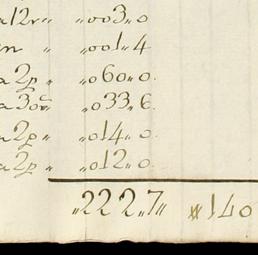 a12r〃 〃003〃0
n 〃 〃001〃4
a 2p 〃 〃060〃0
a 30 〃 〃033〃6
a 2p 〃 〃014〃0
a 2p 〃 〃012〃0
〃222〃7〃 140